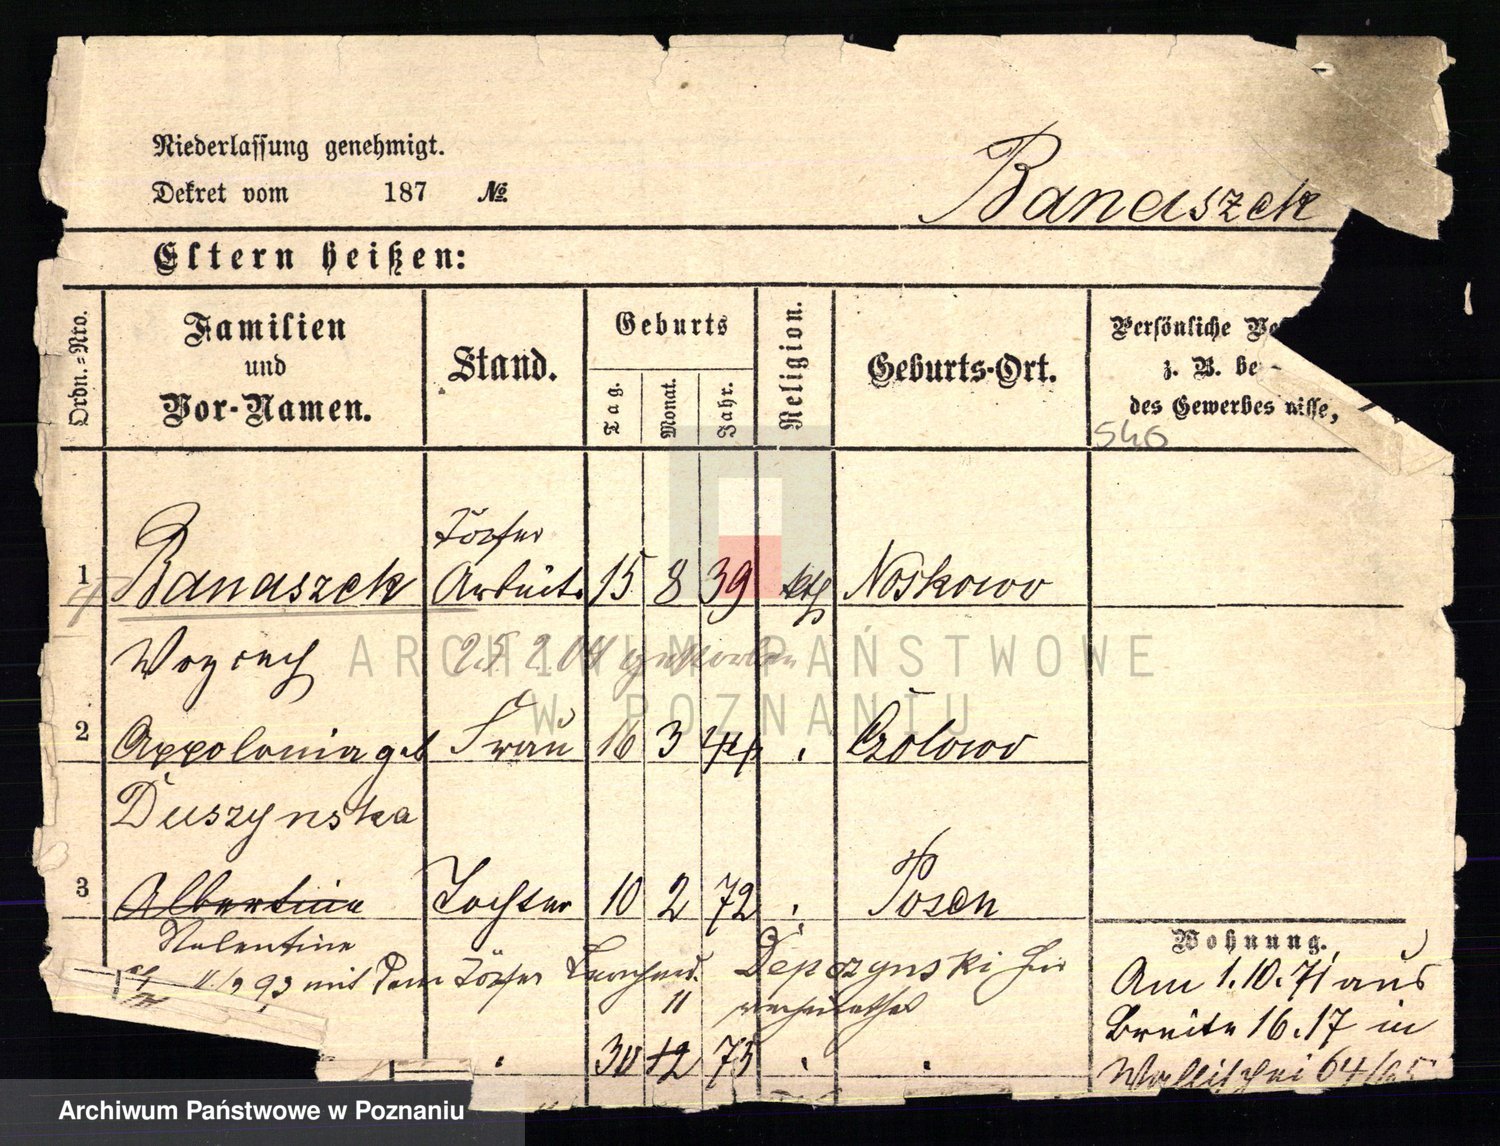 Niederlassung genehmigt.
Dekret vom 187 №
Banaszek
Eltern heißen:
Ordn.-Nro.
Familien und Vor-Namen.
Stand.
Geburts
Tag.
Monat.
Jahr.
Religion.
Geburts-Ort.
Persönliche
z. B. be
des Gewerbes nisse,
546
1 Banaszek Töpfer Arbeit. 15 8 39 kth Noskowo
25 2 04 gestorben
2 Appolonia geb Frau 16 3 44 Czolowo
Duszynska
3 Albertine Tochter 10 2 72 Posen
Valentine
93 mit dem Töpfer Depczynski hier
11
30 12 75
Wohnung.
Am 1.10.71 aus
Breite 16.17 in
Wallischei 64/65
ARCHIWUM PAŃSTWOWE
W POZNANIU
Archiwum Państwowe w Poznaniu